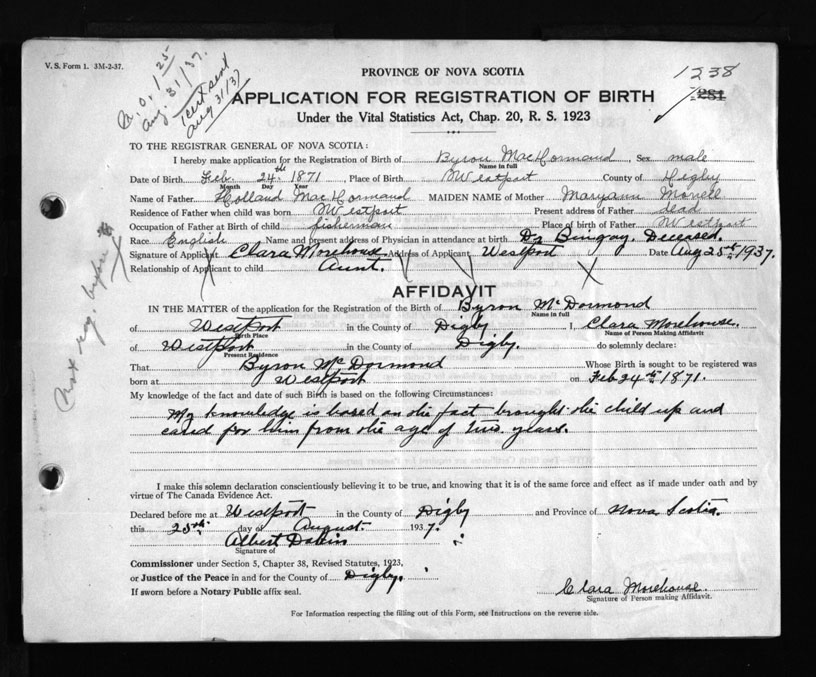 V. S. Form 1. 3M-2-37.
M.O. 1.25
Aug. 31/37.
Cert sent
Aug 31/37
PROVINCE OF NOVA SCOTIA
1238
281
APPLICATION FOR REGISTRATION OF BIRTH
Under the Vital Statistics Act, Chap. 20, R. S. 1923
TO THE REGISTRAR GENERAL OF NOVA SCOTIA:
I hereby make application for the Registration of Birth of Byron MacDormand, Sex male
Name in full
Date of Birth Feb. 24th 1871, Place of Birth Westport County of Digby
Month Day Year
Name of Father Holland MacDormand MAIDEN NAME of Mother Maryann Morrell
Residence of Father when child was born Westport Present address of Father dead
Occupation of Father at Birth of child fisherman Place of birth of Father Westport
Race English Name and present address of Physician in attendance at birth Dr Bingay. Deceased.
Signature of Applicant Clara Morehouse. Address of Applicant Westport Date Aug 25th 1937.
Relationship of Applicant to child Aunt.
Not reg. before
AFFIDAVIT
IN THE MATTER of the application for the Registration of Birth of Byron McDormond
Name in full
of Westport in the County of Digby I, Clara Morehouse.
Birth Place Name of Person Making Affidavit
of Westport in the County of Digby. do solemnly declare:
Present Residence
That Byron McDormond Whose Birth is sought to be registered was
born at Westport on Feb 24th 1871.
My knowledge of the fact and date of such Birth is based on the following Circumstances:
My knowledge is based on the fact brought the child up and
cared for him from the age of two years.
I make this solemn declaration conscientiously believing it to be true, and knowing that it is of the same force and effect as if made under oath and by
virtue of The Canada Evidence Act.
Declared before me at Westport in the County of Digby and Province of Nova Scotia.
this 25th day of August 1937.
Albert
Signature of
Commissioner under Section 5, Chapter 38, Revised Statutes, 1923,
or Justice of the Peace in and for the County of Digby.
If sworn before a Notary Public affix seal.
Clara Morehouse.
Signature of Person making Affidavit.
For Information respecting the filling out of this Form, see Instructions on the reverse side.